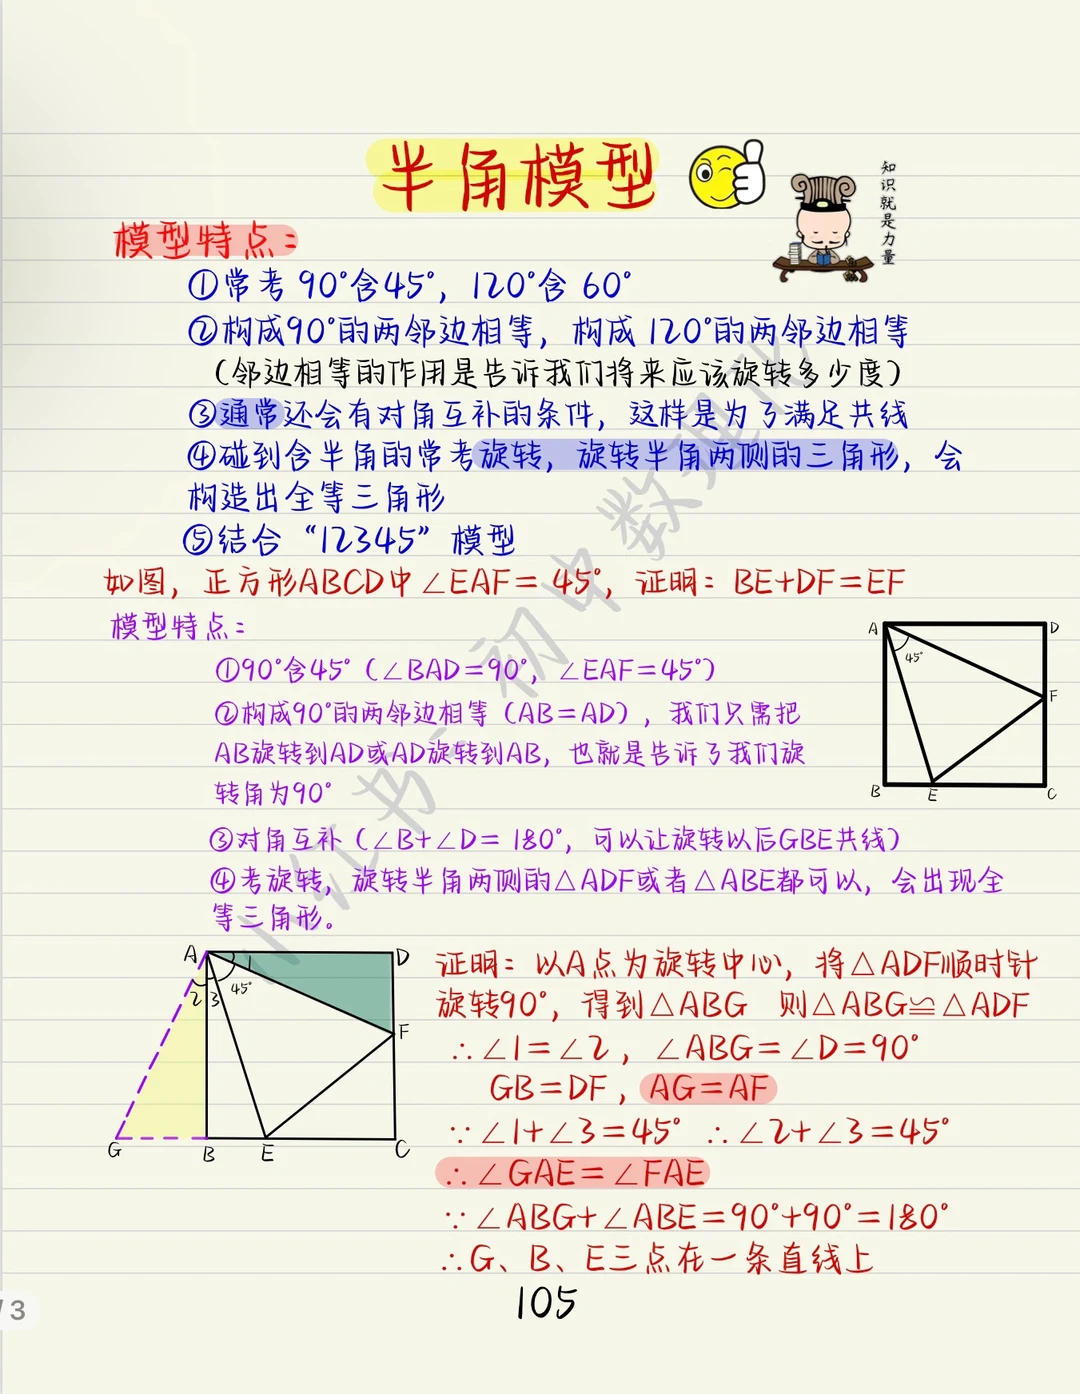 半角模型
知识就是力量
模型特点：
①常考90°含45°，120°含60°
②构成90°的两邻边相等，构成120°的两邻边相等
（邻边相等的作用是告诉我们将来应该旋转多少度）
③通常还会有对角互补的条件，这样是为了满足共线
④碰到含半角的常考旋转，旋转半角两侧的三角形，会
构造出全等三角形
⑤结合“12345”模型
如图，正方形ABCD中∠EAF=45°，证明：BE+DF=EF
模型特点：
①90°含45°（∠BAD=90°，∠EAF=45°）
②构成90°的两邻边相等（AB=AD），我们只需把
AB旋转到AD或AD旋转到AB，也就是告诉了我们旋
转角为90°
③对角互补（∠B+∠D=180°，可以让旋转以后GBE共线）
④考旋转，旋转半角两侧的△ADF或者△ABE都可以，会出现全
等三角形。
A D
45°
F
B E C
A D
1
2 3 45°
F
G B E C
证明：以A点为旋转中心，将△ADF顺时针
旋转90°，得到△ABG 则△ABG≌△ADF
∴∠1=∠2，∠ABG=∠D=90°
GB=DF，AG=AF
∵∠1+∠3=45° ∴∠2+∠3=45°
∴∠GAE=∠FAE
∵∠ABG+∠ABE=90°+90°=180°
∴G、B、E三点在一条直线上
105
/3
小红书：初中数理化